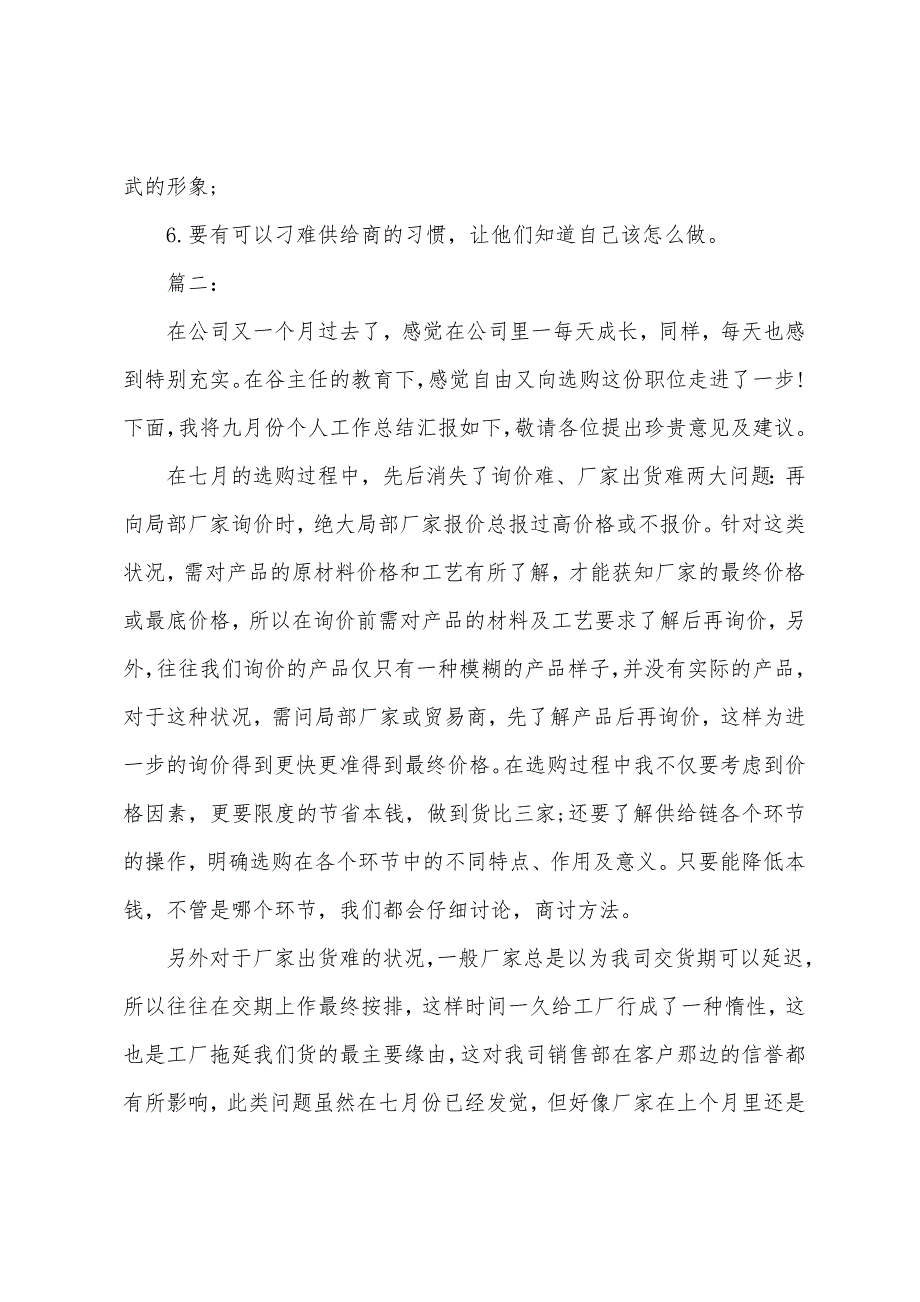 武的形象;
6.要有可以刁难供给商的习惯，让他们知道自己该怎么做。
篇二：
在公司又一个月过去了，感觉在公司里一每天成长，同样，每天也感
到特别充实。在谷主任的教育下，感觉自由又向选购这份职位走进了一步!
下面，我将九月份个人工作总结汇报如下，敬请各位提出珍贵意见及建议。
在七月的选购过程中，先后消失了询价难、厂家出货难两大问题：再
向局部厂家询价时，绝大局部厂家报价总报过高价格或不报价。针对这类
状况，需对产品的原材料价格和工艺有所了解，才能获知厂家的最终价格
或最底价格，所以在询价前需对产品的材料及工艺要求了解后再询价，另
外，往往我们询价的产品仅只有一种模糊的产品样子，并没有实际的产品，
对于这种状况，需问局部厂家或贸易商，先了解产品后再询价，这样为进
一步的询价得到更快更准得到最终价格。在选购过程中我不仅要考虑到价
格因素，更要限度的节省本钱，做到货比三家;还要了解供给链各个环节
的操作，明确选购在各个环节中的不同特点、作用及意义。只要能降低本
钱，不管是哪个环节，我们都会仔细讨论，商讨方法。
另外对于厂家出货难的状况，一般厂家总是以为我司交货期可以延迟，
所以往往在交期上作最终按排，这样时间一久给工厂行成了一种惰性，这
也是工厂拖延我们货的最主要缘由，这对我司销售部在客户那边的信誉都
有所影响，此类问题虽然在七月份已经发觉，但好像厂家在上个月里还是